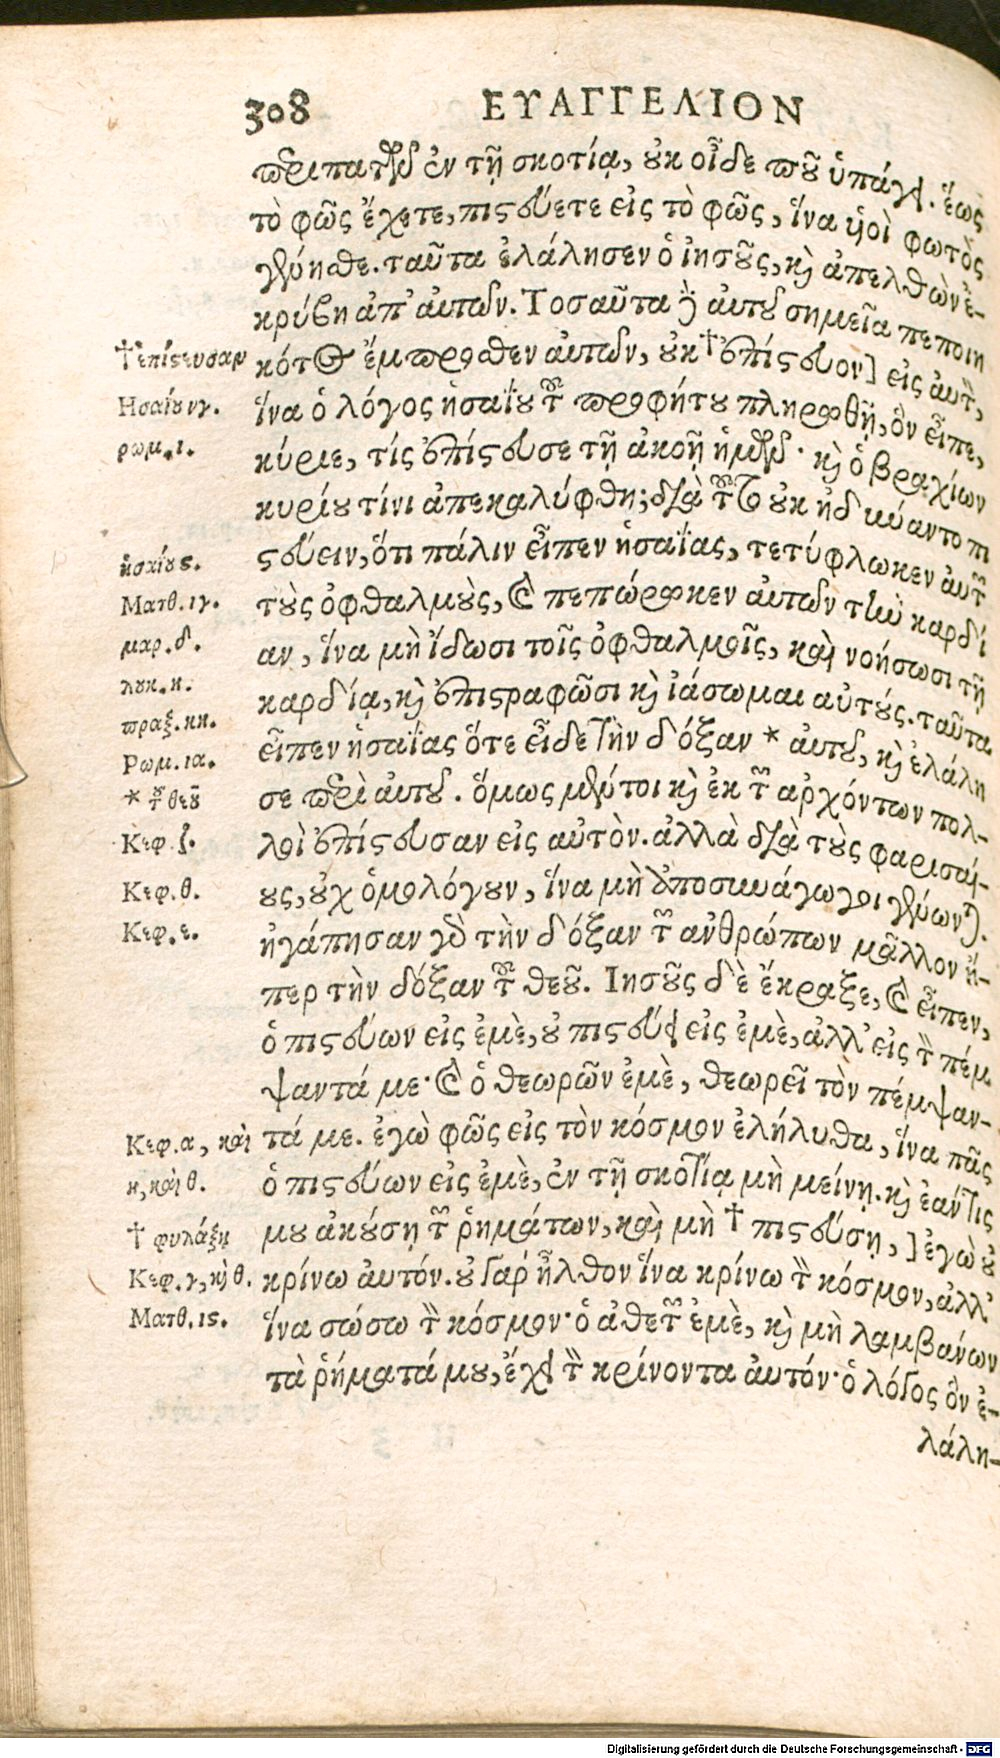 308 ΕΥΑΓΓΕΛΙΟΝ
περιπατῶν ἐν τῇ σκοτίᾳ, οὐκ οἶδε ποῦ ὑπάγει. ἕως
τὸ φῶς ἔχετε, πιστεύετε εἰς τὸ φῶς, ἵνα υἱοὶ φωτὸς
γένησθε. ταῦτα ἐλάλησεν ὁ ἰησοῦς, κὶ ἀπελθὼν ἐ-
κρύβη ἀπ' αὐτῶν. Τοσαῦτα δὲ αὐτοῦ σημεῖα πεποιη
†ἐπίστευσαν κότος ἔμπροσθεν αὐτῶν, οὐκ †ἐπίστευον] εἰς αὐτὸν,
Ησαίου νγ. ἵνα ὁ λόγος ἡσαΐου τοῦ προφήτου πληρωθῇ, ὃν εἶπε,
ρωμ. ι. κύριε, τίς ἐπίστευσε τῇ ἀκοῇ ἡμῶν· κὶ ὁ βραχίων
κυρίου τίνι ἀπεκαλύφθη; διὰ τοῦτο οὐκ ἠδύναντο πι
ἡσαίου ς. στεύειν, ὅτι πάλιν εἶπεν ἡσαΐας, τετύφλωκεν αὐτῶν
Ματθ. ιγ. τοὺς ὀφθαλμοὺς, καὶ πεπώρωκεν αὐτῶν τὴν καρδί
μαρ. δ. αν, ἵνα μὴ ἴδωσι τοῖς ὀφθαλμοῖς, καὶ νοήσωσι τῇ
λουκ. η. καρδίᾳ, κὶ ἐπιστραφῶσι κὶ ἰάσωμαι αὐτούς. ταῦτα
πραξ. κη. εἶπεν ἡσαΐας ὅτε εἶδε τὴν δόξαν * αὐτοῦ, κὶ ἐλάλη
Ρωμ. ια.
* τοῦ θεοῦ σε περὶ αὐτοῦ. ὅμως μέντοι κὶ ἐκ τῶν ἀρχόντων πολ-
Κεφ. ζ. λοὶ ἐπίστευσαν εἰς αὐτὸν. ἀλλὰ διὰ τοὺς φαρισαί-
Κεφ. θ. ους, οὐχ ὁμολόγουν, ἵνα μὴ ἀποσυνάγωγοι γένωνται.
Κεφ. ε. ἠγάπησαν γὰρ τὴν δόξαν τῶν ἀνθρώπων μᾶλλον ἤ-
περ τὴν δόξαν τοῦ θεοῦ. Ιησοῦς δὲ ἔκραξε, καὶ εἶπεν,
ὁ πιστεύων εἰς ἐμὲ, οὐ πιστεύει εἰς ἐμὲ, ἀλλ' εἰς τὸν πέμ
ψαντά με· καὶ ὁ θεωρῶν ἐμὲ, θεωρεῖ τὸν πέμψαν-
Κεφ. α, καὶ τά με. ἐγὼ φῶς εἰς τὸν κόσμον ἐλήλυθα, ἵνα πᾶς
η, καὶ θ. ὁ πιστεύων εἰς ἐμὲ, ἐν τῇ σκοτίᾳ μὴ μείνῃ. κὶ ἐάν τις
† φυλάξῃ μου ἀκούσῃ τῶν ῥημάτων, καὶ μὴ † πιστεύσῃ, ] ἐγὼ οὐ
Κεφ. γ, κὶ θ. κρίνω αὐτόν. οὐ γαρ ἦλθον ἵνα κρίνω τὸν κόσμον, ἀλλ'
Ματθ. ις. ἵνα σώσω τὸν κόσμον· ὁ ἀθετῶν ἐμὲ, κὶ μὴ λαμβάνων
τὰ ῥήματά μου, ἔχει τὸν κρίνοντα αὐτόν· ὁ λόγος ὃν ἐ-
λάλη-
Digitalisierung gefördert durch die Deutsche Forschungsgemeinschaft - DFG